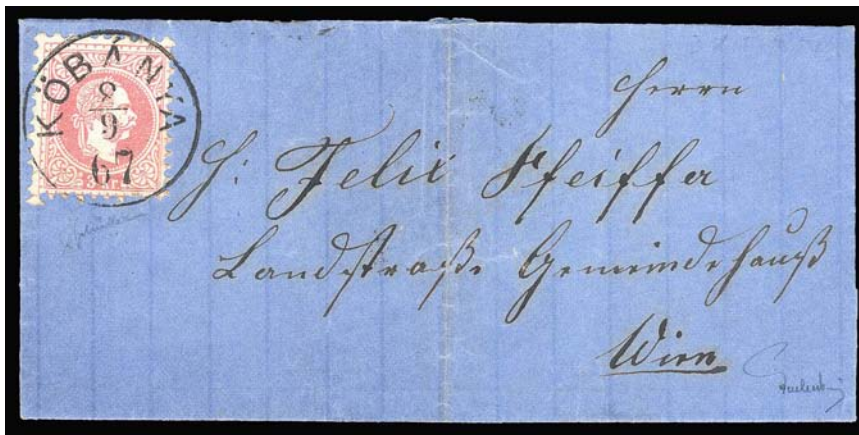 KÖBÁNYA
8/9
67
3 KR.
Herrn
H: Felix Pfeiffer
Landstraße Gemeindehauß
Wien